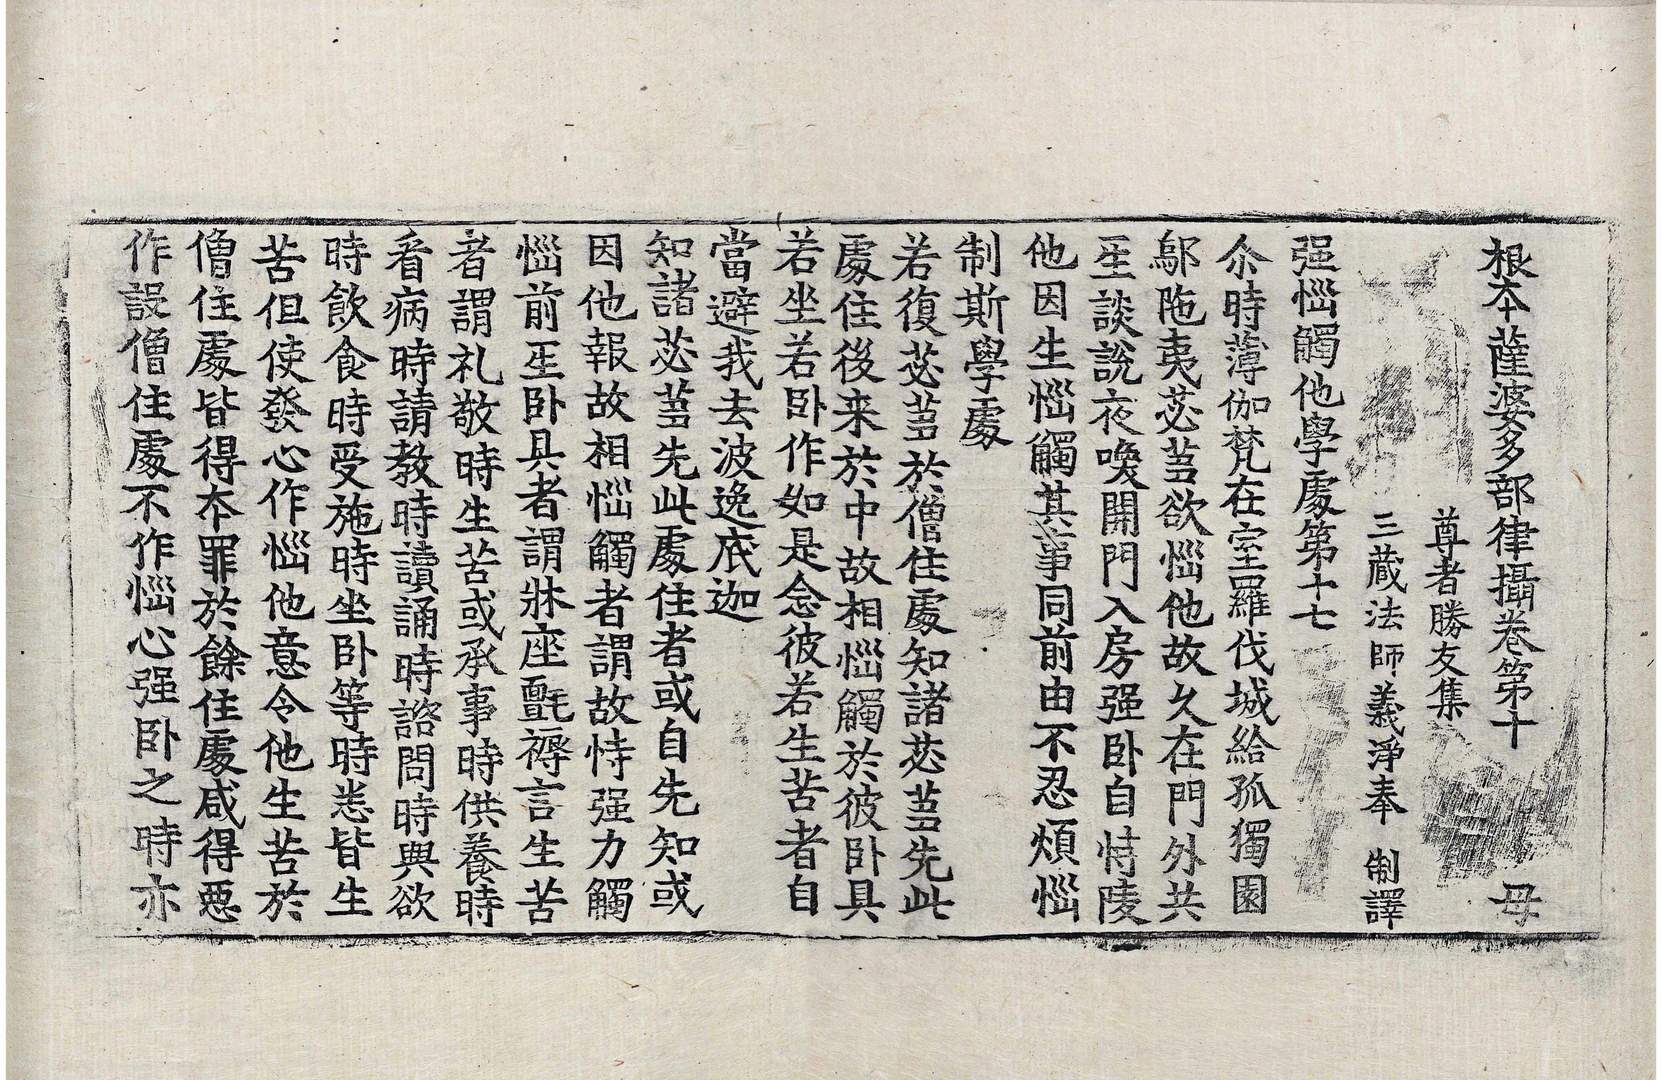 根夲薩婆多部律攝卷第十　母
尊者勝友集
三藏法師義淨奉　制譯
强惱觸他學處第十七
尒時薄伽梵在室羅伐城給孤獨園
鄔陁夷苾蒭欲惱他故久在門外共
坐談說夜喚開門入房强卧自恃陵
他因生惱觸其事同前由不忍煩惱
制斯學處
若復苾蒭於僧住處知諸苾蒭先此
處住後来於中故相惱觸於彼卧具
若坐若卧作如是念彼若生苦者自
當避我去波逸底迦
知諸苾蒭先此處住者或自先知或
因他報故相惱觸者謂故恃强力觸
惱前坐卧具者謂牀座氈褥言生苦
者謂礼敬時生苦或承事時供養時
看病時請教時讀誦時諮問時與欲
時飲食時受施時坐卧等時悉皆生
苦但使發心作惱他意令他生苦於
僧住處皆得夲罪於餘住處咸得惡
作設僧住處不作惱心强卧之時亦